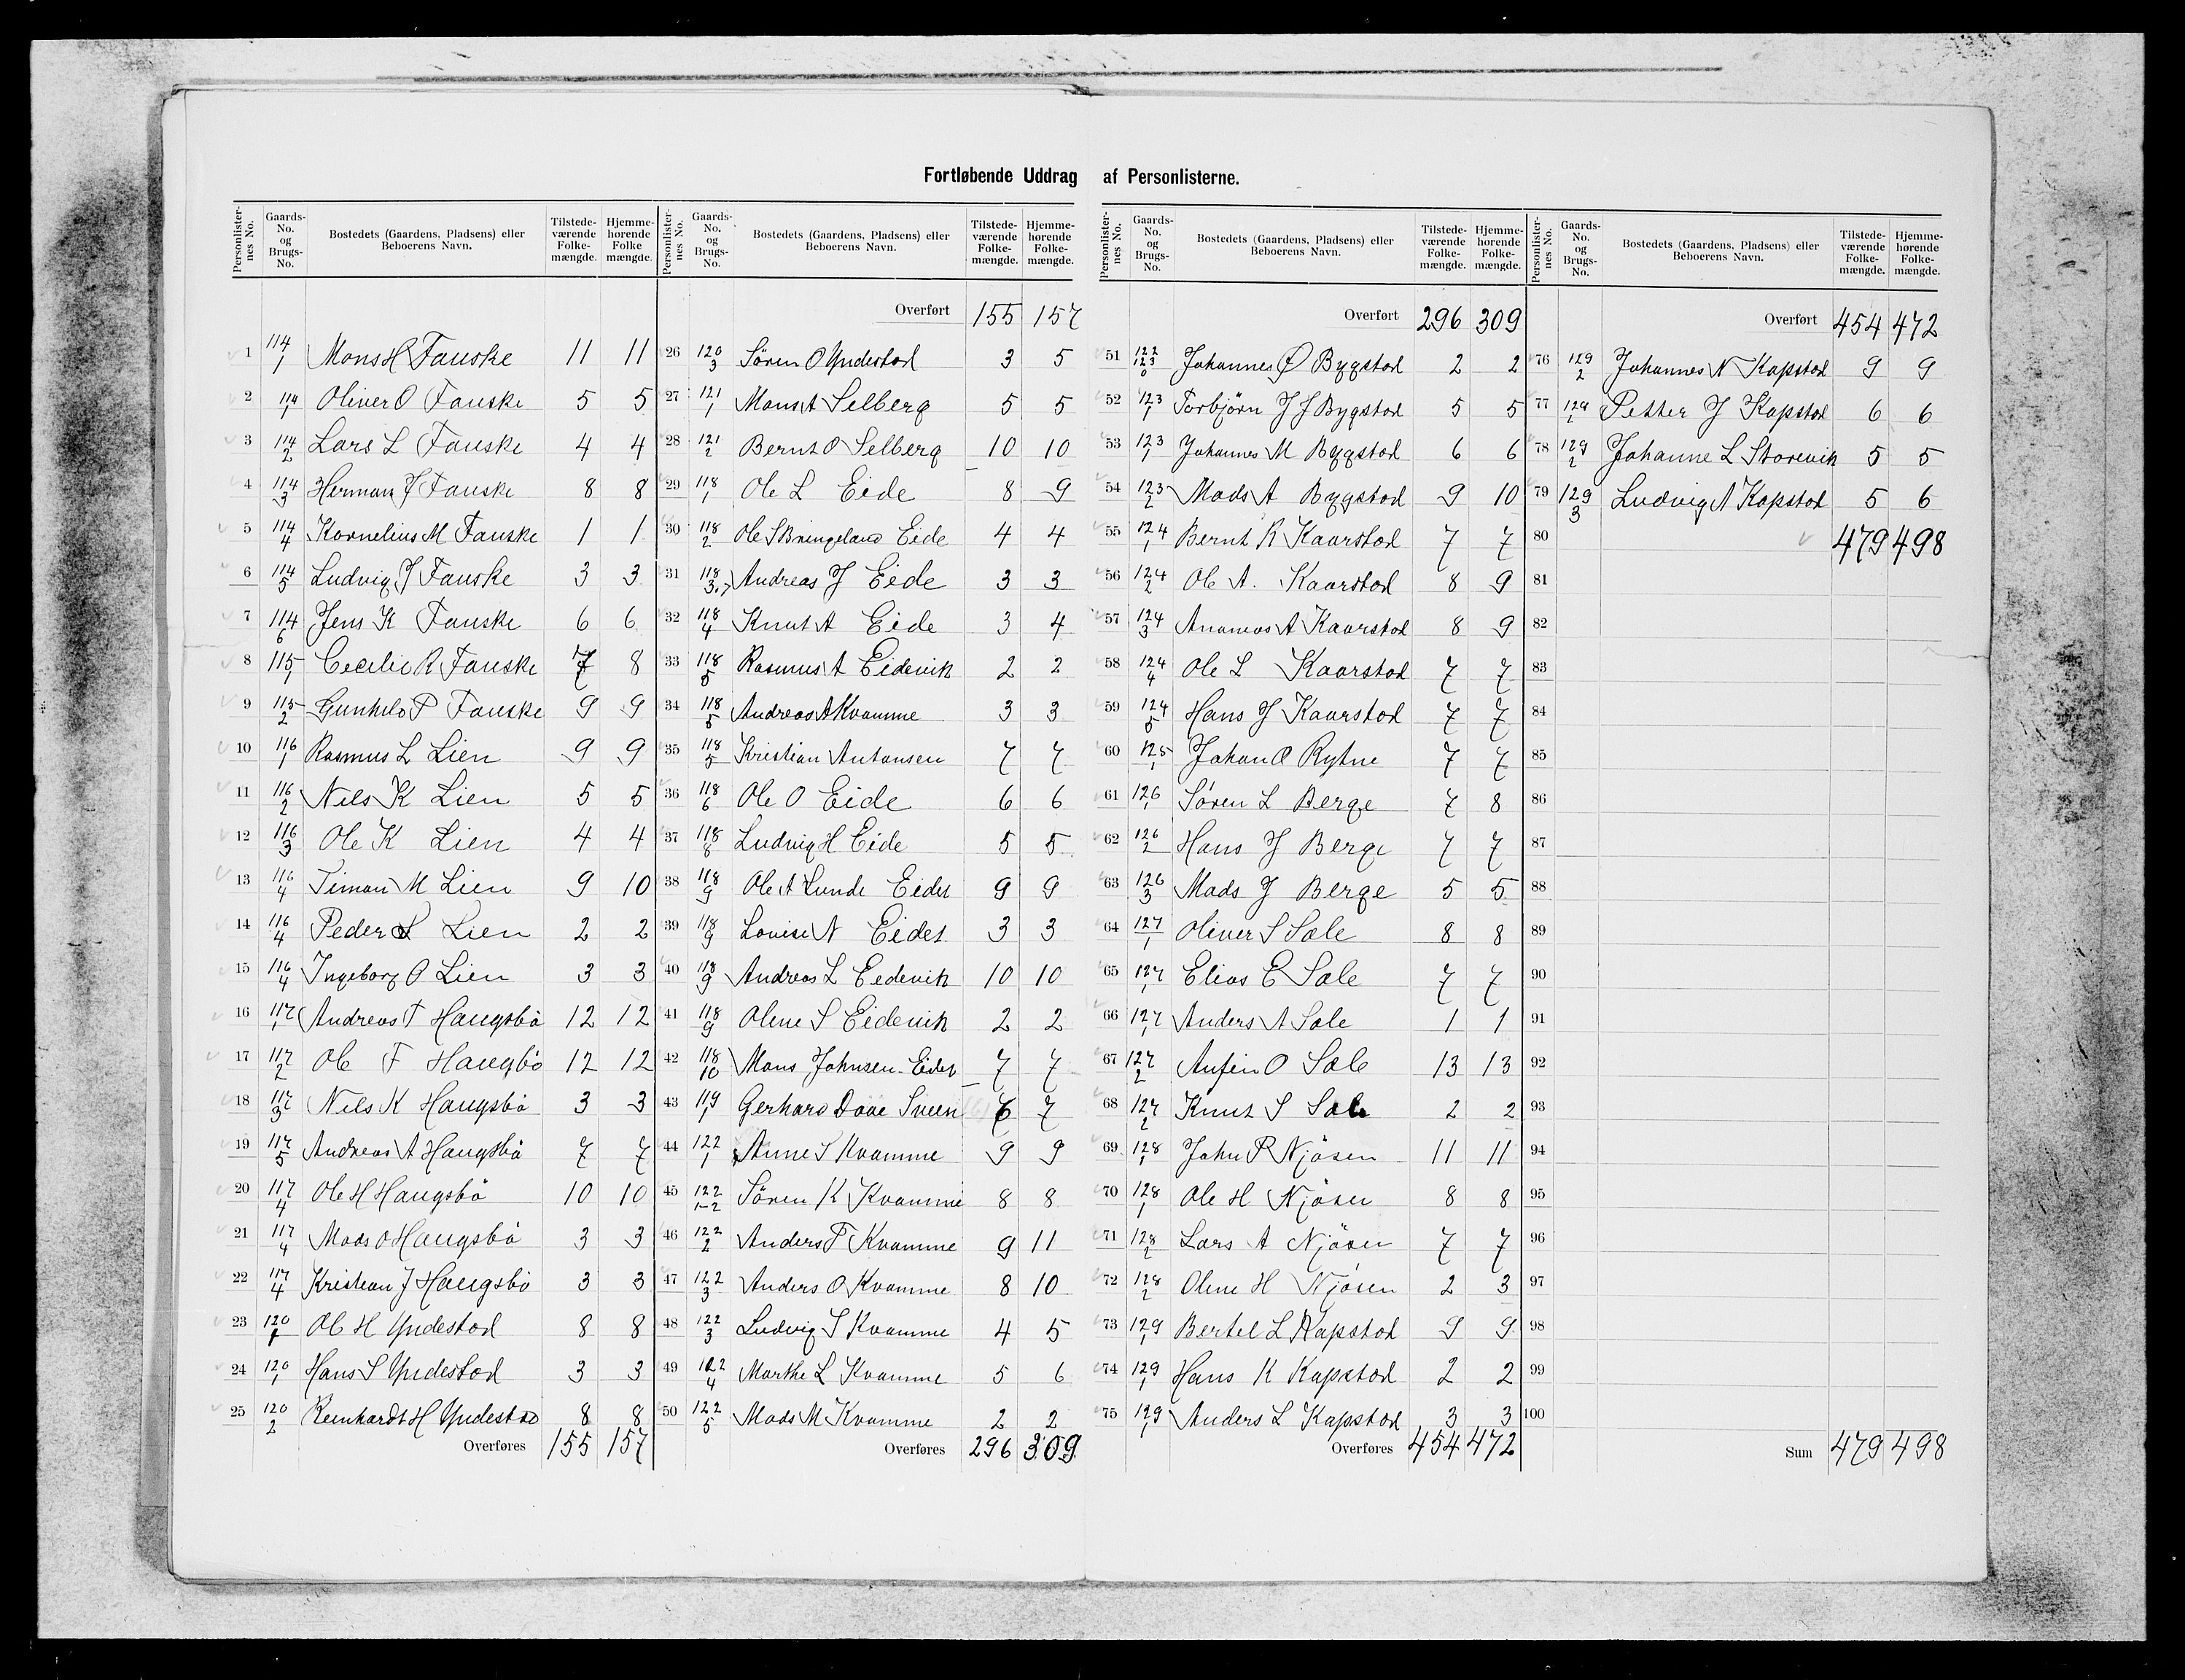 Fortløbende Uddrag af Personlisterne.
Personlister-nes No. Gaards-No. og Brugs-No. Bostedets (Gaardens, Pladsens) eller Beboerens Navn. Tilstede-værende Folke-mængde. Hjemme-hørende Folke mængde.
1 114/1 Mons H Fauske 11 11
2 114/1 Oliver O Fauske 5 5
3 114/2 Lars L Fauske 4 4
4 114/3 Herman J Fauske 8 8
5 114/4 Kornelius M Fauske 1 1
6 114/5 Ludvig J Fauske 3 3
7 114/6 Jens K Fauske 6 6
8 115/1 Cecilie R Fauske 7 8
9 115/2 Gunhild P Fauske 9 9
10 116/1 Rasmus L Lien 9 9
11 116/2 Nils K Lien 5 5
12 116/3 Ole K Lien 4 4
13 116/4 Timan M Lien 9 10
14 116/4 Peder L Lien 2 2
15 116/4 Ingeborg O Lien 3 3
16 117/1 Andreas T Haugsbö 12 12
17 117/2 Ole F Haugbö 12 12
18 117/3 Nils K Haugsbö 3 3
19 117/5 Andreas A Haugsbö 7 7
20 117/4 Ole H Haugsbö 10 10
21 117/4 Mads O Haugsbö 3 3
22 117/4 Kristian J Haugsbö 3 3
23 120/1 Ole H Yndestad 8 8
24 120/1 Hans S Yndestad 3 3
25 120/2 Reinhardt H Yndestad 8 8
Overføres 155 157
Personlister-nes No. Gaards-No. og Brugs-No. Bostedets (Gaardens, Pladsens) eller Beboerens Navn. Tilstede-værende Folke-mængde. Hjemme-hørende Folke-mængde.
Overført 155 157
26 120/3 Sören O Yndestad 3 5
27 121/1 Mons A Selberg 5 5
28 121/2 Bernt O Selberg 10 10
29 118/1 Ole L Eide 8 9
30 118/2 Ole S Bringeland Eide 4 4
31 118/3.7 Andreas J Eide 3 3
32 118/4 Knut A Eide 3 4
33 118/5 Rasmus A Eidevik 2 2
34 118/5 Andreas A Kvamme 3 3
35 118/5 Kristian Antonsen 7 7
36 118/6 Ole O Eide 6 6
37 118/8 Ludvig H Eide 5 5
38 118/9 Ole A Lunde Eidet 9 9
39 118/9 Lovise N Eidet 3 3
40 118/9 Andreas L Eidevik 10 10
41 118/9 Oline S Eidevik 2 2
42 118/10 Mons Johnsen Eidet 7 7
43 119/1 Gerhard Daae Sveen 6 7
44 122/1 Anne S Kvamme 9 9
45 122/1-2 Sören K Kvamme 8 8
46 122/2 Anders P Kvamme 9 11
47 122/3 Anders O Kvamme 8 10
48 122/3 Ludvig S Kvamme 4 5
49 122/4 Marthe L Kvamme 5 6
50 122/5 Mads M Kvamme 2 2
Overføres 296 309
Personlister-nes No. Gaards-No. og Brugs-No. Bostedets (Gaardens, Pladsens) eller Beboerens Navn. Tilstede-værende Folke-mængde. Hjemme-hørende Folke-mængde.
Overført 296 309
51 122 123/0 Johannes Ø Bygstad 2 2
52 123/1 Torbjörn J J Bygstad 5 5
53 123/1 Johannes M Bygstad 6 6
54 123/2 Mads A Bygstad 9 10
55 124/1 Bernt R Kaarstad 7 7
56 124/2 Ole A. Kaarstad 8 9
57 124/3 Ananias A Kaarstad 8 9
58 124/4 Ole L Kaarstad 7 7
59 124/5 Hans J Kaarstad 7 7
60 125/1 Johan O Rytne 7 7
61 126/1 Sören L Berge 7 8
62 126/2 Hans J Berge 7 7
63 126/3 Mads J Berge 5 5
64 127/1 Oliver S Sæle 8 8
65 127/1 Elias E Sæle 7 7
66 127/1 Anders A Sæle 1 1
67 127/2 Anfin O Sæle 13 13
68 127/2 Knut S Sæle 2 2
69 128/1 John P Njösen 11 11
70 128/1 Ole H Njösen 8 8
71 128/2 Lars A Njösen 7 7
72 128/2 Oline H Njösen 2 3
73 129/1 Bertel L Kapstad 9 9
74 129/1 Hans K Kapstad 2 2
75 129/1 Anders L Kapstad 3 3
Overføres 454 472
Personlister-nes No. Gaards-No. og Brugs-No. Bostedets (Gaardens, Pladsens) eller Beboerens Navn. Tilstede-værende Folke-mængde. Hjemme-hørende Folke-mængde.
Overført 454 472
76 129/2 Johannes N Kapstad 9 9
77 129/2 Petter J Kapstad 6 6
78 129/2 Johanne L Storevik 5 5
79 129/3 Ludvig A Kapstad 5 6
80 479 498
81
82
83
84
85
86
87
88
89
90
91
92
93
94
95
96
97
98
99
100
Sum 479 498